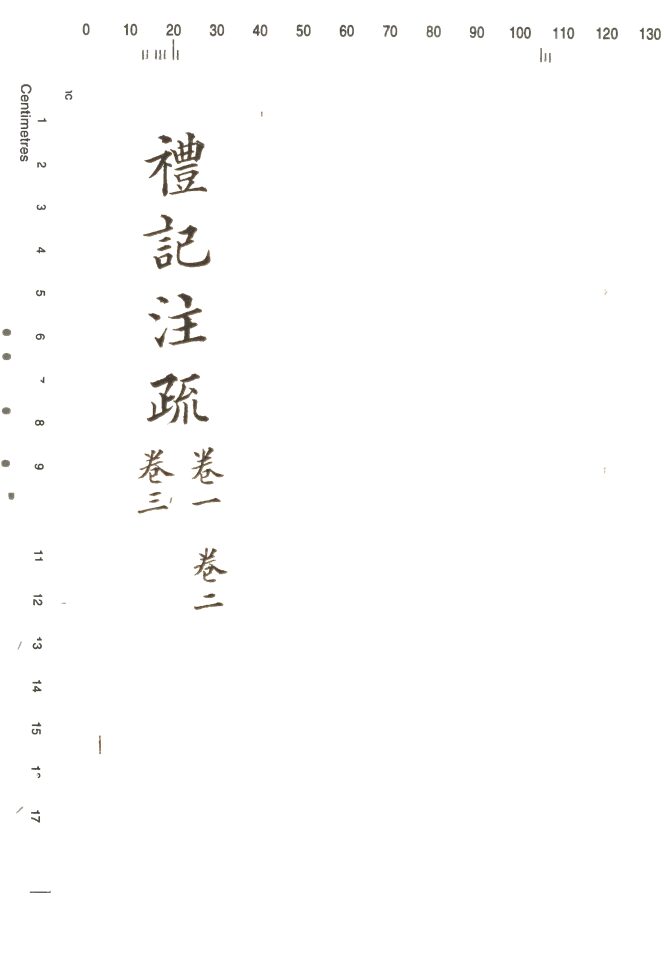 0 10 20 30 40 50 60 70 80 90 100 110 120 130
Centimetres
1
2
3
4
5
6
7
8
9
11
12
13
14
15
17
禮記注疏
卷一 卷二
卷三